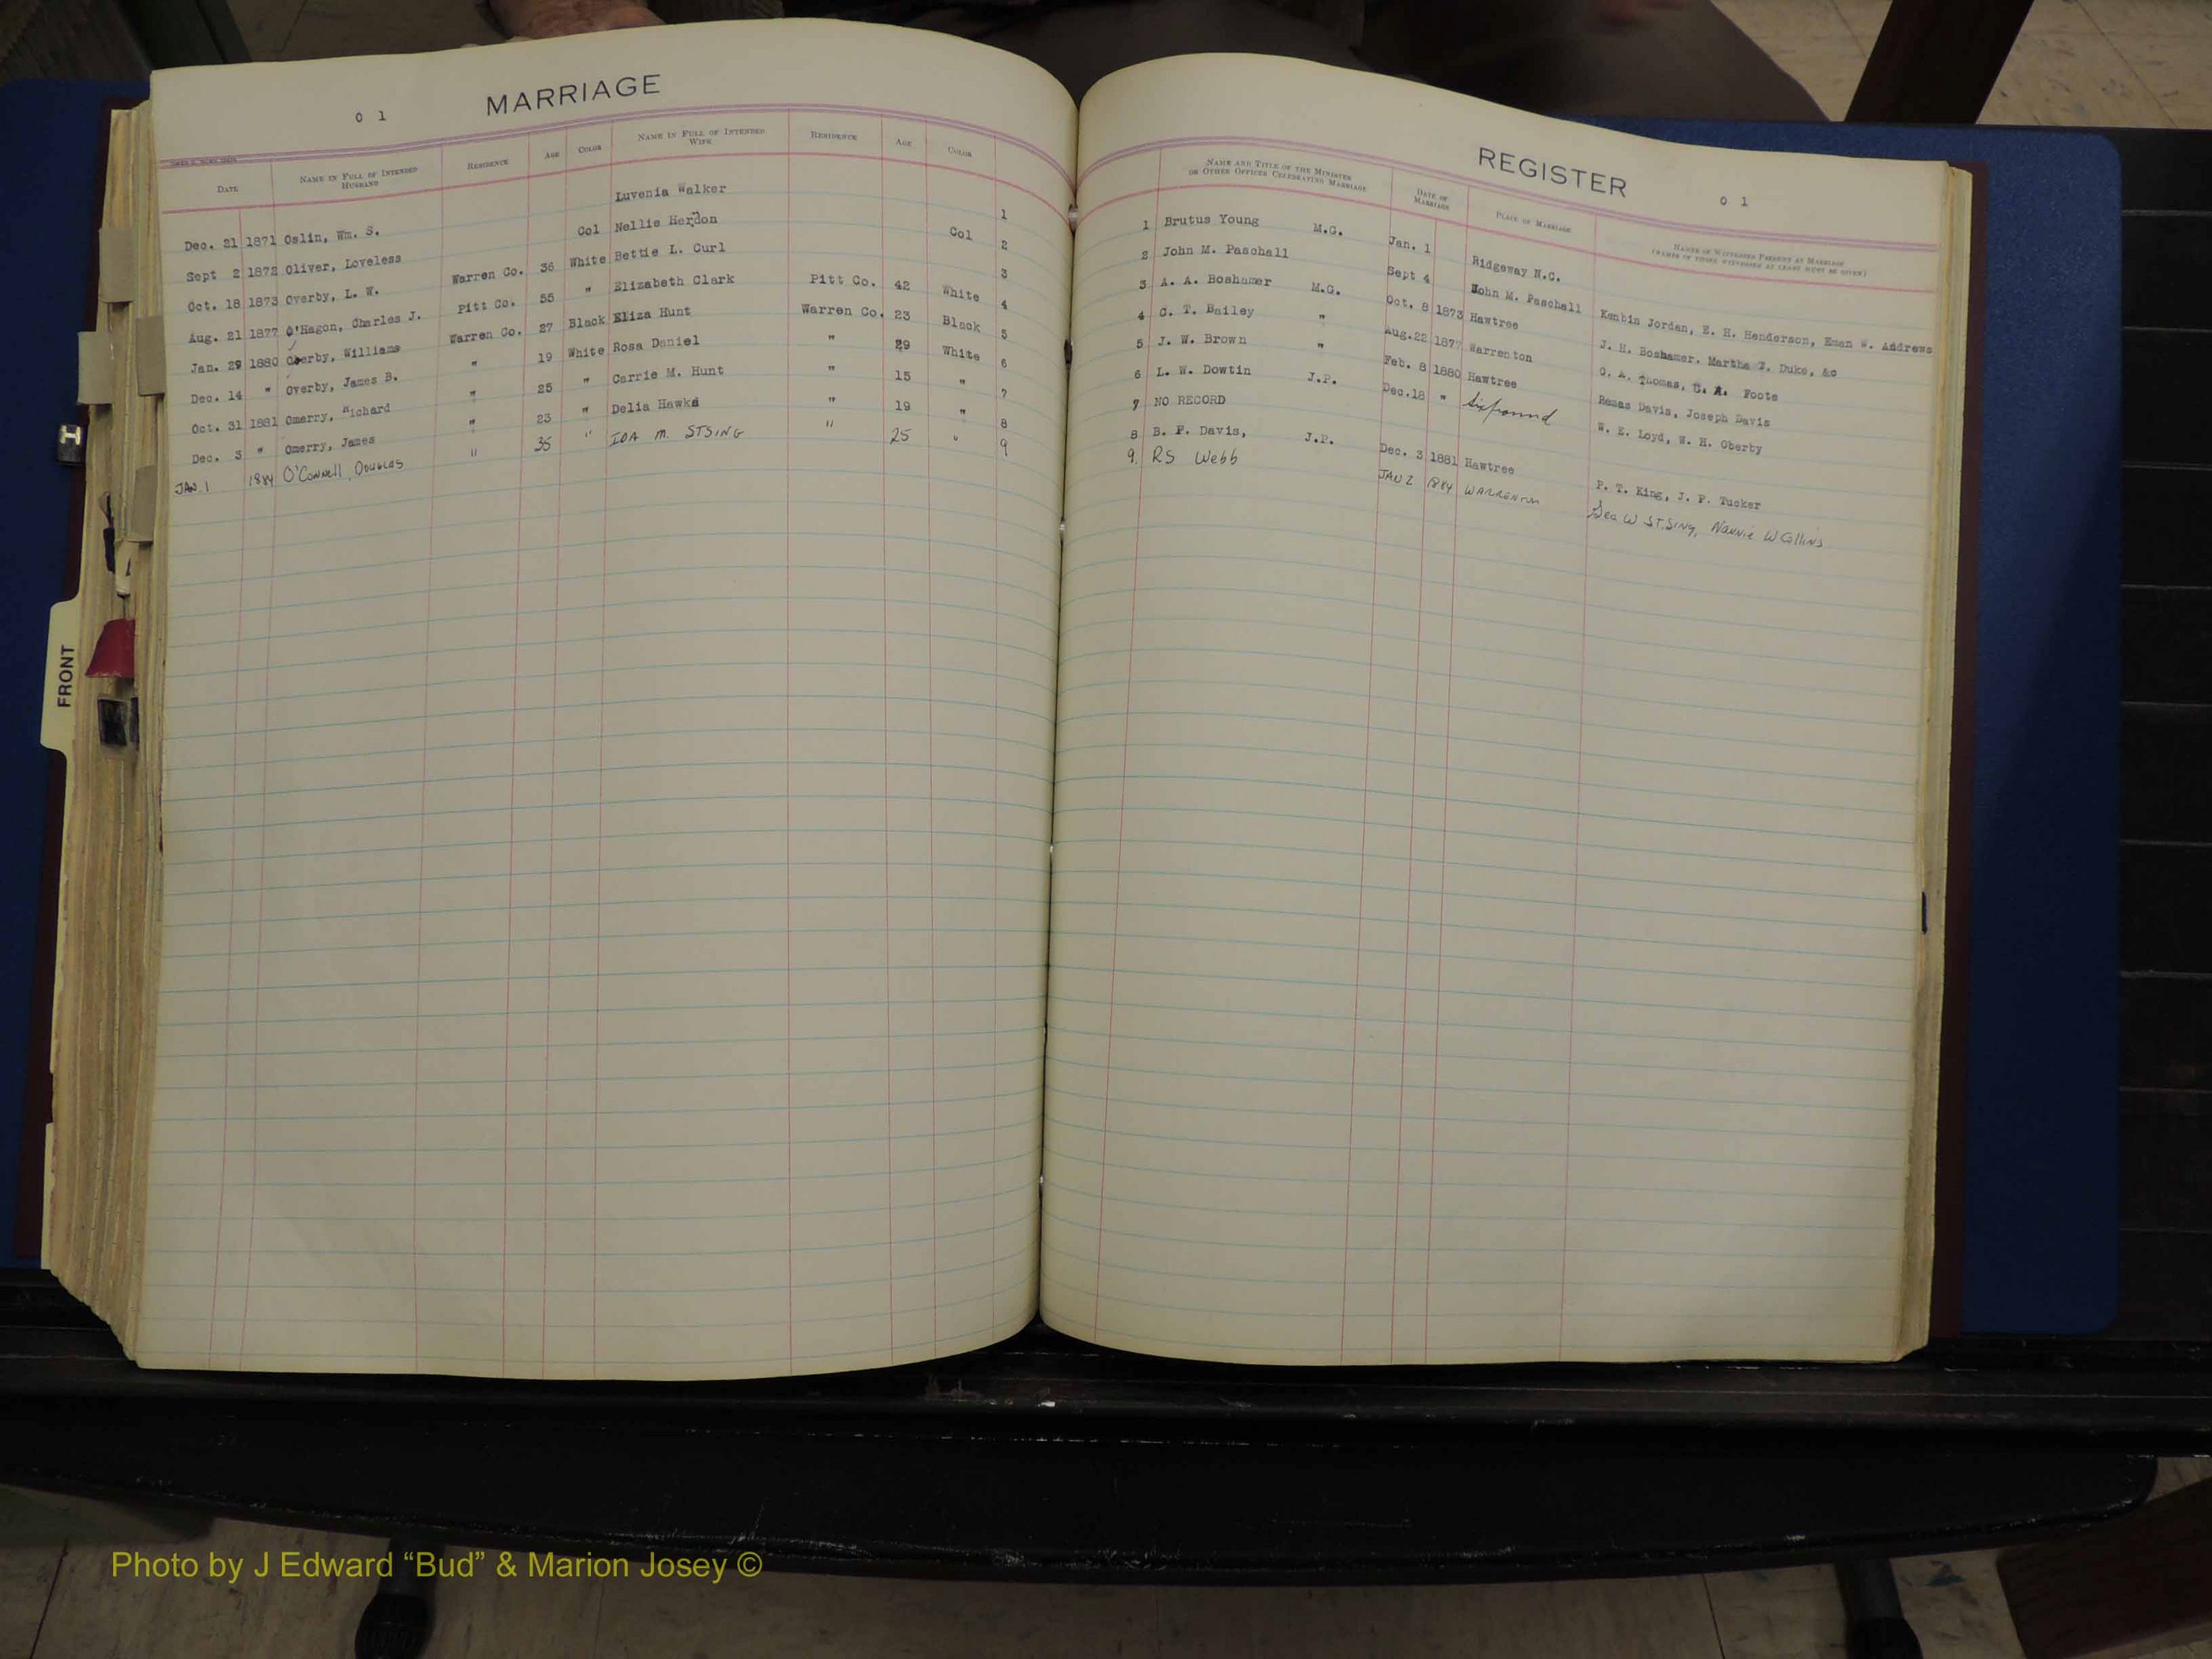 0 1 MARRIAGE
DATE NAME IN FULL OF INTENDED HUSBAND RESIDENCE AGE COLOR NAME IN FULL OF INTENDED WIFE RESIDENCE AGE COLOR
Dec. 21 1871 Oslin, Wm. S. Luvenia Walker 1
Sept 2 1872 Oliver, Loveless Col Nellie Herndon Col 2
Oct. 18 1873 Overby, L. W. Warren Co. 36 White Bettie L. Curl 3
Aug. 21 1877 O'Hagon, Charles J. Pitt Co. 55 " Elizabeth Clark Pitt Co. 42 White 4
Jan. 29 1880 Overby, Williams Warren Co. 27 Black Eliza Hunt Warren Co. 23 Black 5
Dec. 14 " Overby, James B. " 19 White Rosa Daniel " 29 White 6
Oct. 31 1881 Omerry, Richard " 25 " Carrie M. Hunt " 15 " 7
Dec. 3 " Omerry, James " 23 " Delia Hawks " 19 " 8
JAN 1 1884 O'Connell, Douglas " 35 " IDA M. STSING " 25 " 9
REGISTER 0 1
NAME AND TITLE OF THE MINISTER OR OTHER OFFICER CELEBRATING MARRIAGE DATE OF MARRIAGE PLACE OF MARRIAGE NAMES OF WITNESSES PRESENT AT MARRIAGE (NAMES OF THREE WITNESSES AT LEAST MUST BE GIVEN)
1 Brutus Young M.G. Jan. 1 Ridgeway N.C.
2 John M. Paschall Sept 4 John M. Paschall Kenbin Jordan, E. H. Henderson, Eman W. Andrews
3 A. A. Boshamer M.G. Oct. 8 1873 Hawtree J. H. Boshamer, Martha T. Duke, &c
4 C. T. Bailey " Aug.22 1877 Warrenton O. A. Thomas, C. A. Foote
5 J. W. Brown " Feb. 8 1880 Hawtree Remas Davis, Joseph Davis
6 L. W. Dowtin J.P. Dec.18 " Sixpound W. E. Loyd, W. H. Oberby
7 NO RECORD
8 B. F. Davis, J.P. Dec. 3 1881 Hawtree P. T. King, J. P. Tucker
9. RS Webb JAN 2 1884 WARRENTON Geo W ST.SING, Nannie W Collins
FRONT
H
Photo by J Edward “Bud” & Marion Josey ©